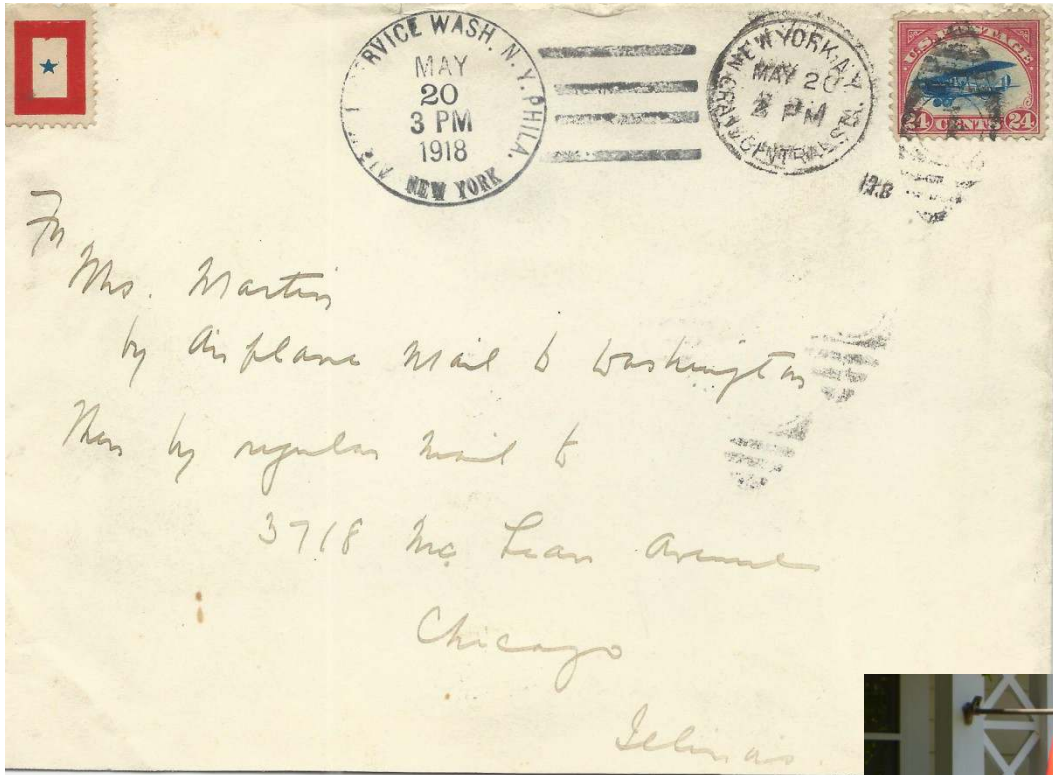 AIR RVICE WASH. N.Y. PHILA.
MAY
20
3 PM
1918
NEW YORK
NEW YORK, N.Y.
MAY 20
PM
GRAND CENTRAL STA.
U.S. POSTAGE
24 CENTS 24
To
Mrs. Martin
by Airplane Mail to Washington
Then by regular Mail to
3718 Mc Lean Avenue
Chicago
Illinois